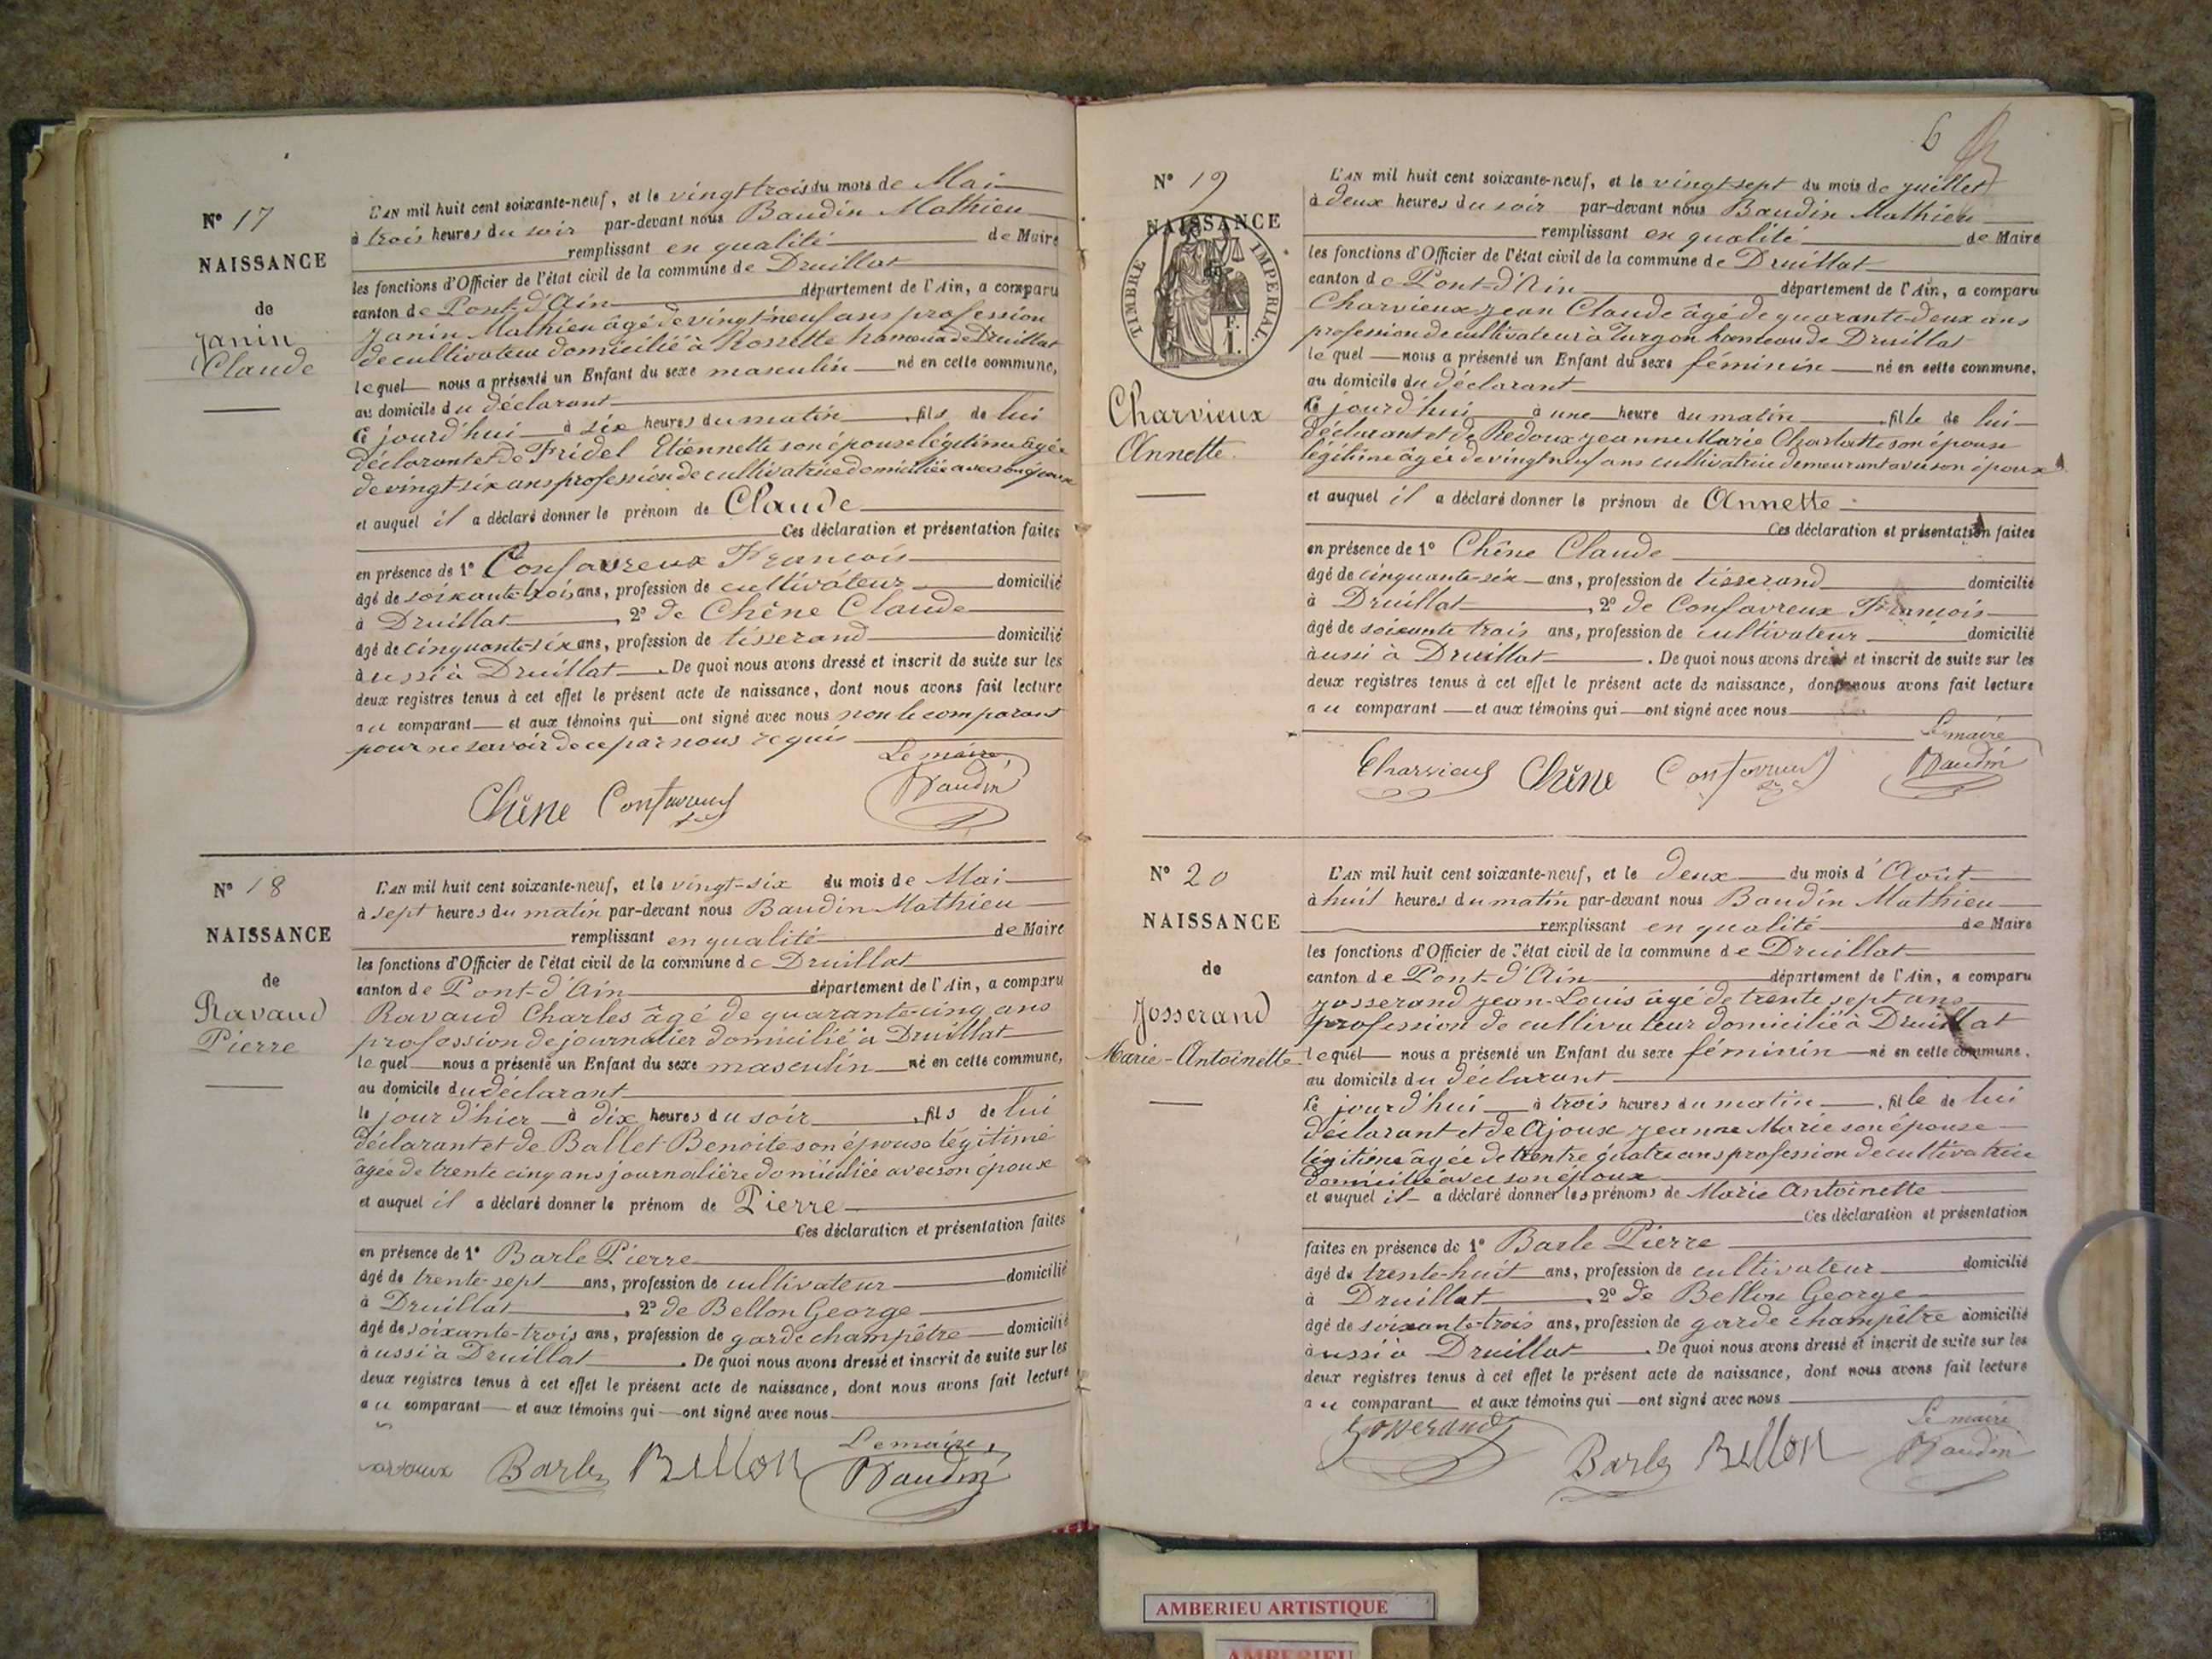 N° 17
NAISSANCE
de
Janin
Claude
L'AN mil huit cent soixante-neuf, et le vingt trois du mois de Mai
à trois heures du soir par-devant nous Baudin Mathieu
remplissant en qualité de Maire
les fonctions d'Officier de l'état civil de la commune de Druillat
canton de Pont-d'Ain département de l'Ain, a comparu
Janin Mathieu âgé de vingt-neuf ans profession
de cultivateur domicilié à Rossette hameau de Druillat
lequel nous a présenté un Enfant du sexe masculin né en cette commune,
au domicile du déclarant
ce jourd'hui à six heures du matin, fils de lui
déclarant et de Fridel Etiennette son épouse légitime âgée
de vingt-six ans profession de cultivatrice domiciliée avec son époux
et auquel il a déclaré donner le prénom de Claude
Ces déclaration et présentation faites
en présence de 1° Confavreux François
âgé de soixante trois ans, profession de cultivateur domicilié
à Druillat, 2° de Chêne Claude
âgé de cinquante-six ans, profession de tisserand domicilié
aussi à Druillat. De quoi nous avons dressé et inscrit de suite sur les
deux registres tenus à cet effet le présent acte de naissance, dont nous avons fait lecture
au comparant et aux témoins qui ont signé avec nous non le comparant
pour ne savoir de ce par nous requis
Le maire
Chêne Confavreux Baudin
N° 18
NAISSANCE
de
Ravaud
Pierre
L'AN mil huit cent soixante-neuf, et le vingt-six du mois de Mai
à sept heures du matin par-devant nous Baudin Mathieu
remplissant en qualité de Maire
les fonctions d'Officier de l'état civil de la commune de Druillat
canton de Pont-d'Ain département de l'Ain, a comparu
Ravaud Charles âgé de quarante-cinq ans
profession de journalier domicilié à Druillat
lequel nous a présenté un Enfant du sexe masculin né en cette commune,
au domicile du déclarant
le jour d'hier à dix heures du soir, fils de lui
déclarant et de Ballet Benoite son épouse légitime
âgée de trente cinq ans journalière domiciliée avec son époux
et auquel il a déclaré donner le prénom de Pierre
Ces déclaration et présentation faites
en présence de 1° Barle Pierre
âgé de trente-sept ans, profession de cultivateur domicilié
à Druillat, 2° de Bellon George
âgé de soixante-trois ans, profession de garde champêtre domicilié
aussi à Druillat. De quoi nous avons dressé et inscrit de suite sur les
deux registres tenus à cet effet le présent acte de naissance, dont nous avons fait lecture
au comparant et aux témoins qui ont signé avec nous
Le maire
Barle Bellon Baudin
6
N° 19
NAISSANCE
de
TIMBRE IMPERIAL.
Charvieux
Annette
L'AN mil huit cent soixante-neuf, et le vingt sept du mois de juillet
à deux heures du soir par-devant nous Baudin Mathieu
remplissant en qualité de Maire
les fonctions d'Officier de l'état civil de la commune de Druillat
canton de Pont-d'Ain département de l'Ain, a comparu
Charvieux Jean Claude âgé de quarante-deux ans
profession de cultivateur à Turgon hameau de Druillat
lequel nous a présenté un Enfant du sexe féminin né en cette commune,
au domicile du déclarant
ce jourd'hui à une heure du matin, fille de lui
déclarant et de Redoux Jeanne Marie Charlotte son épouse
légitime âgée de vingt neuf ans cultivatrice demeurant avec son époux
et auquel il a déclaré donner le prénom de Annette
Ces déclaration et présentation faites
en présence de 1° Chêne Claude
âgé de cinquante-six ans, profession de tisserand domicilié
à Druillat, 2° de Confavreux François
âgé de soixante trois ans, profession de cultivateur domicilié
aussi à Druillat. De quoi nous avons dressé et inscrit de suite sur les
deux registres tenus à cet effet le présent acte de naissance, dont nous avons fait lecture
au comparant et aux témoins qui ont signé avec nous
Le maire
Charvieux Chêne Confavreux Baudin
N° 20
NAISSANCE
de
Josserand
Marie-Antoinette
L'AN mil huit cent soixante-neuf, et le deux du mois d'Août
à huit heures du matin par-devant nous Baudin Mathieu
remplissant en qualité de Maire
les fonctions d'Officier de l'état civil de la commune de Druillat
canton de Pont-d'Ain département de l'Ain, a comparu
Josserand Jean-Louis âgé de trente sept ans
profession de cultivateur domicilié à Druillat
lequel nous a présenté un Enfant du sexe féminin né en cette commune,
au domicile du déclarant
ce jourd'hui à trois heures du matin, fille de lui
déclarant et de Ajoux Jeanne Marie son épouse
légitime âgée de trente quatre ans profession de cultivatrice
domiciliée avec son époux
et auquel il a déclaré donner les prénoms de Marie Antoinette
Ces déclaration et présentation
faites en présence de 1° Barle Pierre
âgé de trente-huit ans, profession de cultivateur domicilié
à Druillat, 2° de Bellon George
âgé de soixante-trois ans, profession de garde champêtre domicilié
aussi à Druillat. De quoi nous avons dressé et inscrit de suite sur les
deux registres tenus à cet effet le présent acte de naissance, dont nous avons fait lecture
au comparant et aux témoins qui ont signé avec nous
Le maire
Josserand Barle Bellon Baudin
AMBERIEU ARTISTIQUE
AMBERIEU